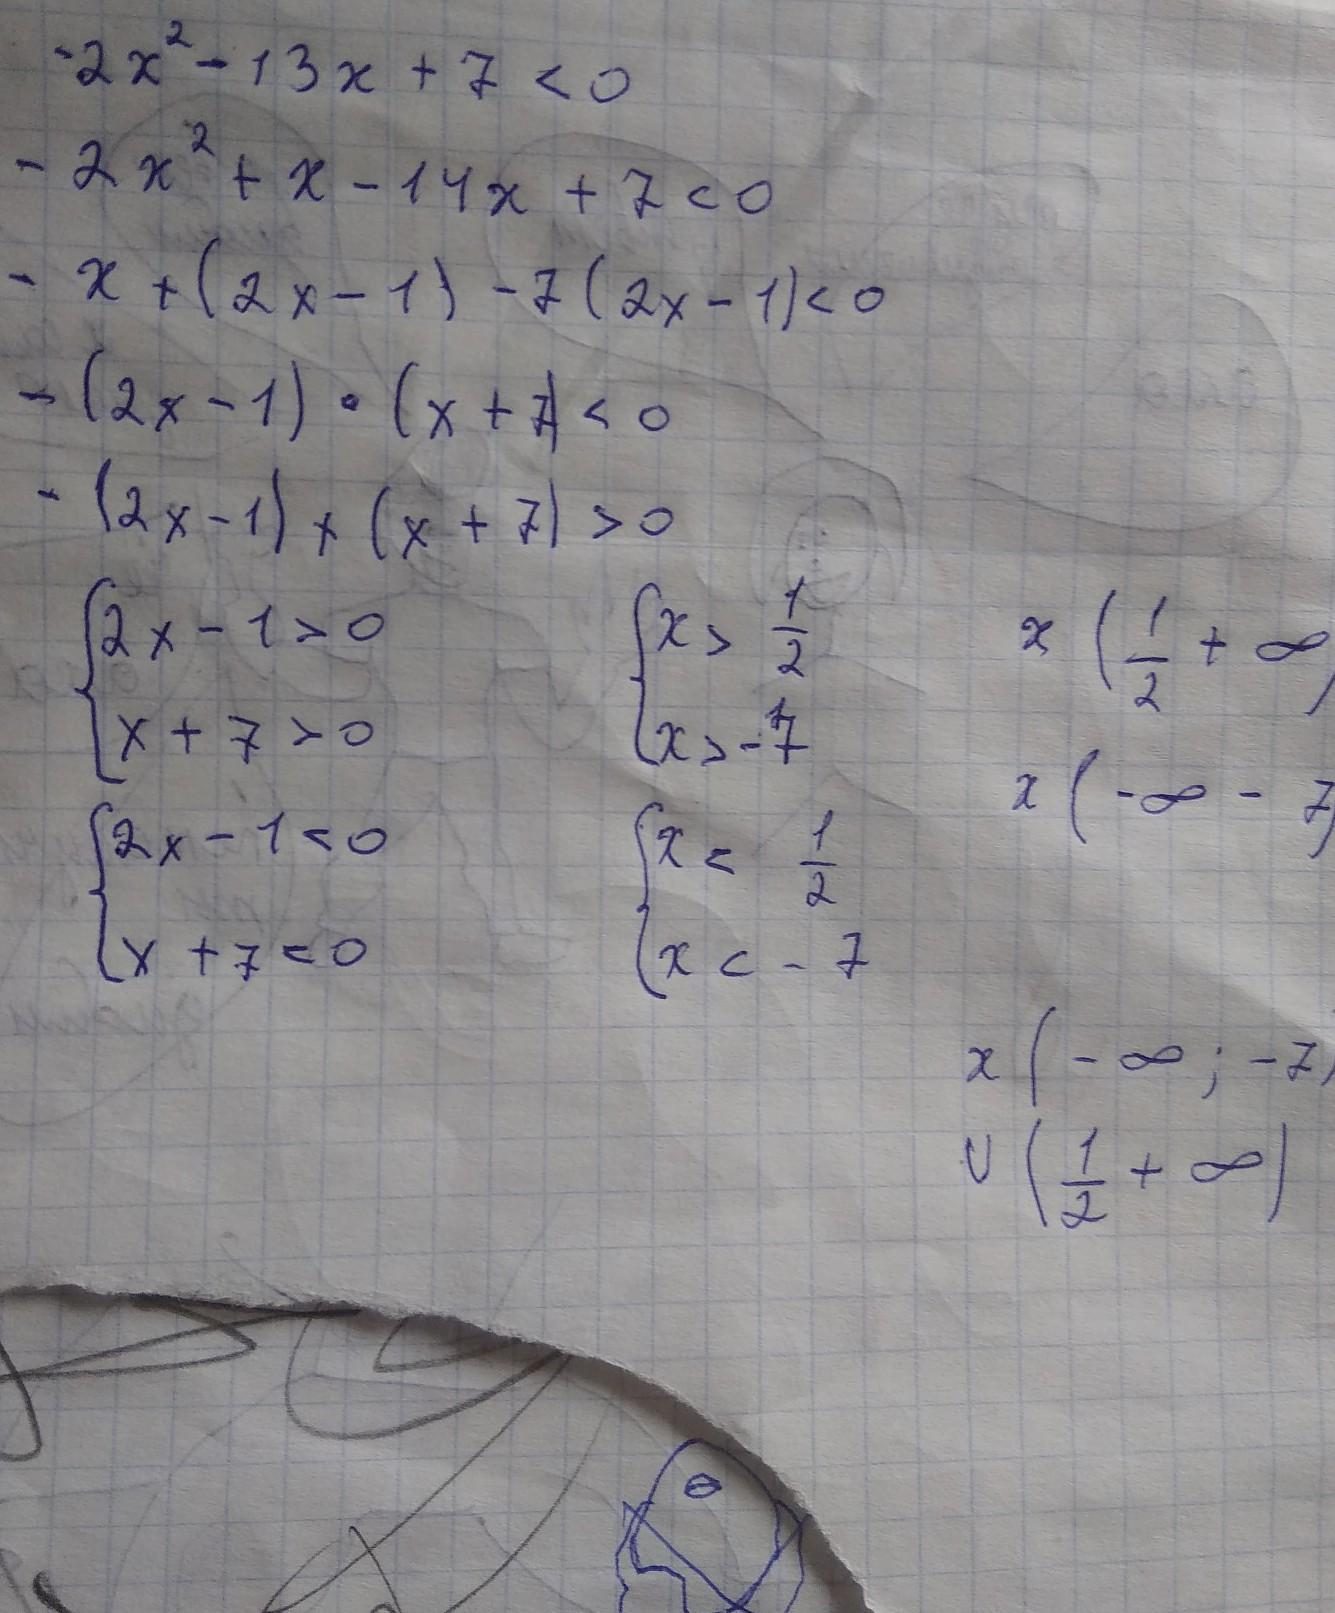 -2x² - 13x + 7 < 0
- 2x² + x - 14x + 7 < 0
- x + (2x - 1) - 7 (2x - 1) < 0
- (2x - 1) · (x + 7) < 0
- (2x - 1) x (x + 7) > 0
{ 2x - 1 > 0 { x > 1/2 x (1/2 + ∞)
x + 7 > 0 x > -7
x (-∞ - 7)
{ 2x - 1 < 0 { x < 1/2
x + 7 < 0 x < - 7
x (- ∞ ; -7)
∪ (1/2 + ∞)